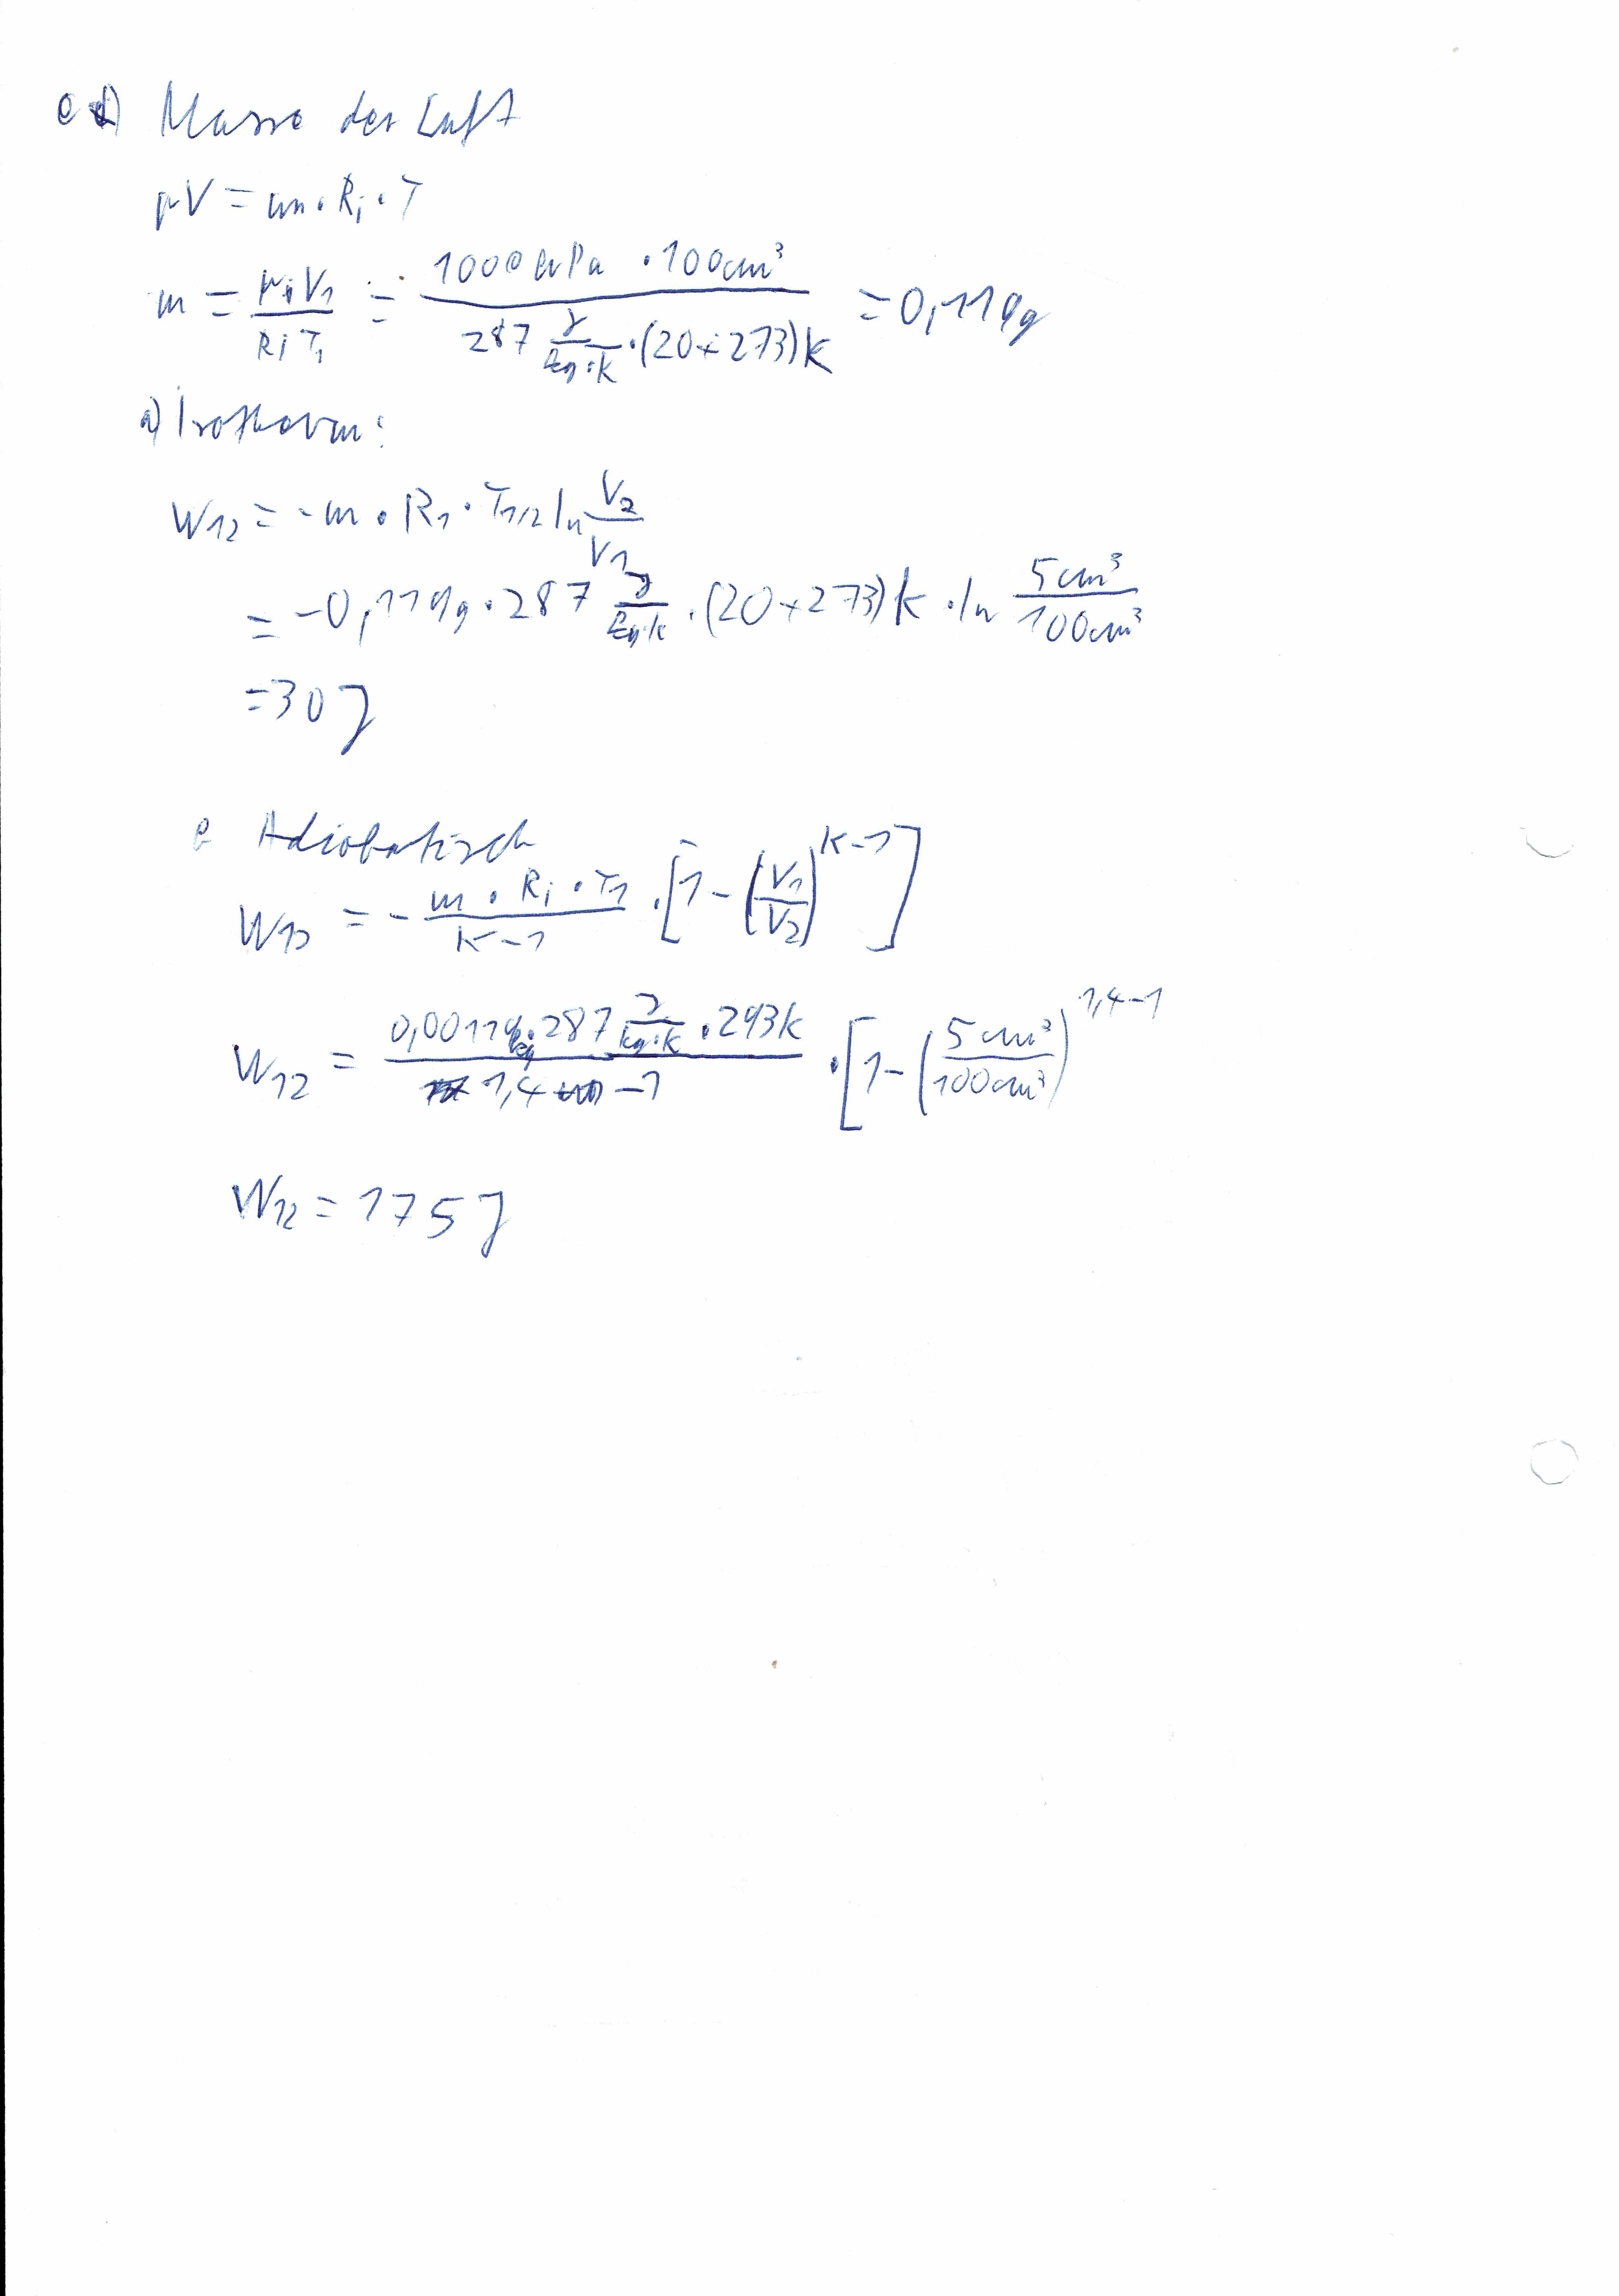 c d) Masse der Luft
pV = m · Ri · T
m = p1 V1 / Ri T1 = 1000 hPa · 100 cm³ / 287 J/kg·K · (20+273)K = 0,119g
a) Isotherm:
W12 = -m · Ri · T1/2 ln V2/V1
= -0,119g · 287 J/kg·K · (20+273)K · ln 5cm³/100cm³
= 30 J
Adiabatisch
W12 = - m · Ri · T1 / κ-1 · [1-(V1/V2)^κ-1]
W12 = 0,00119kg · 287 J/kg·K · 293K / 1,4 -1 · [1-(5cm³/100cm³)^1,4-1
W12 = 175 J